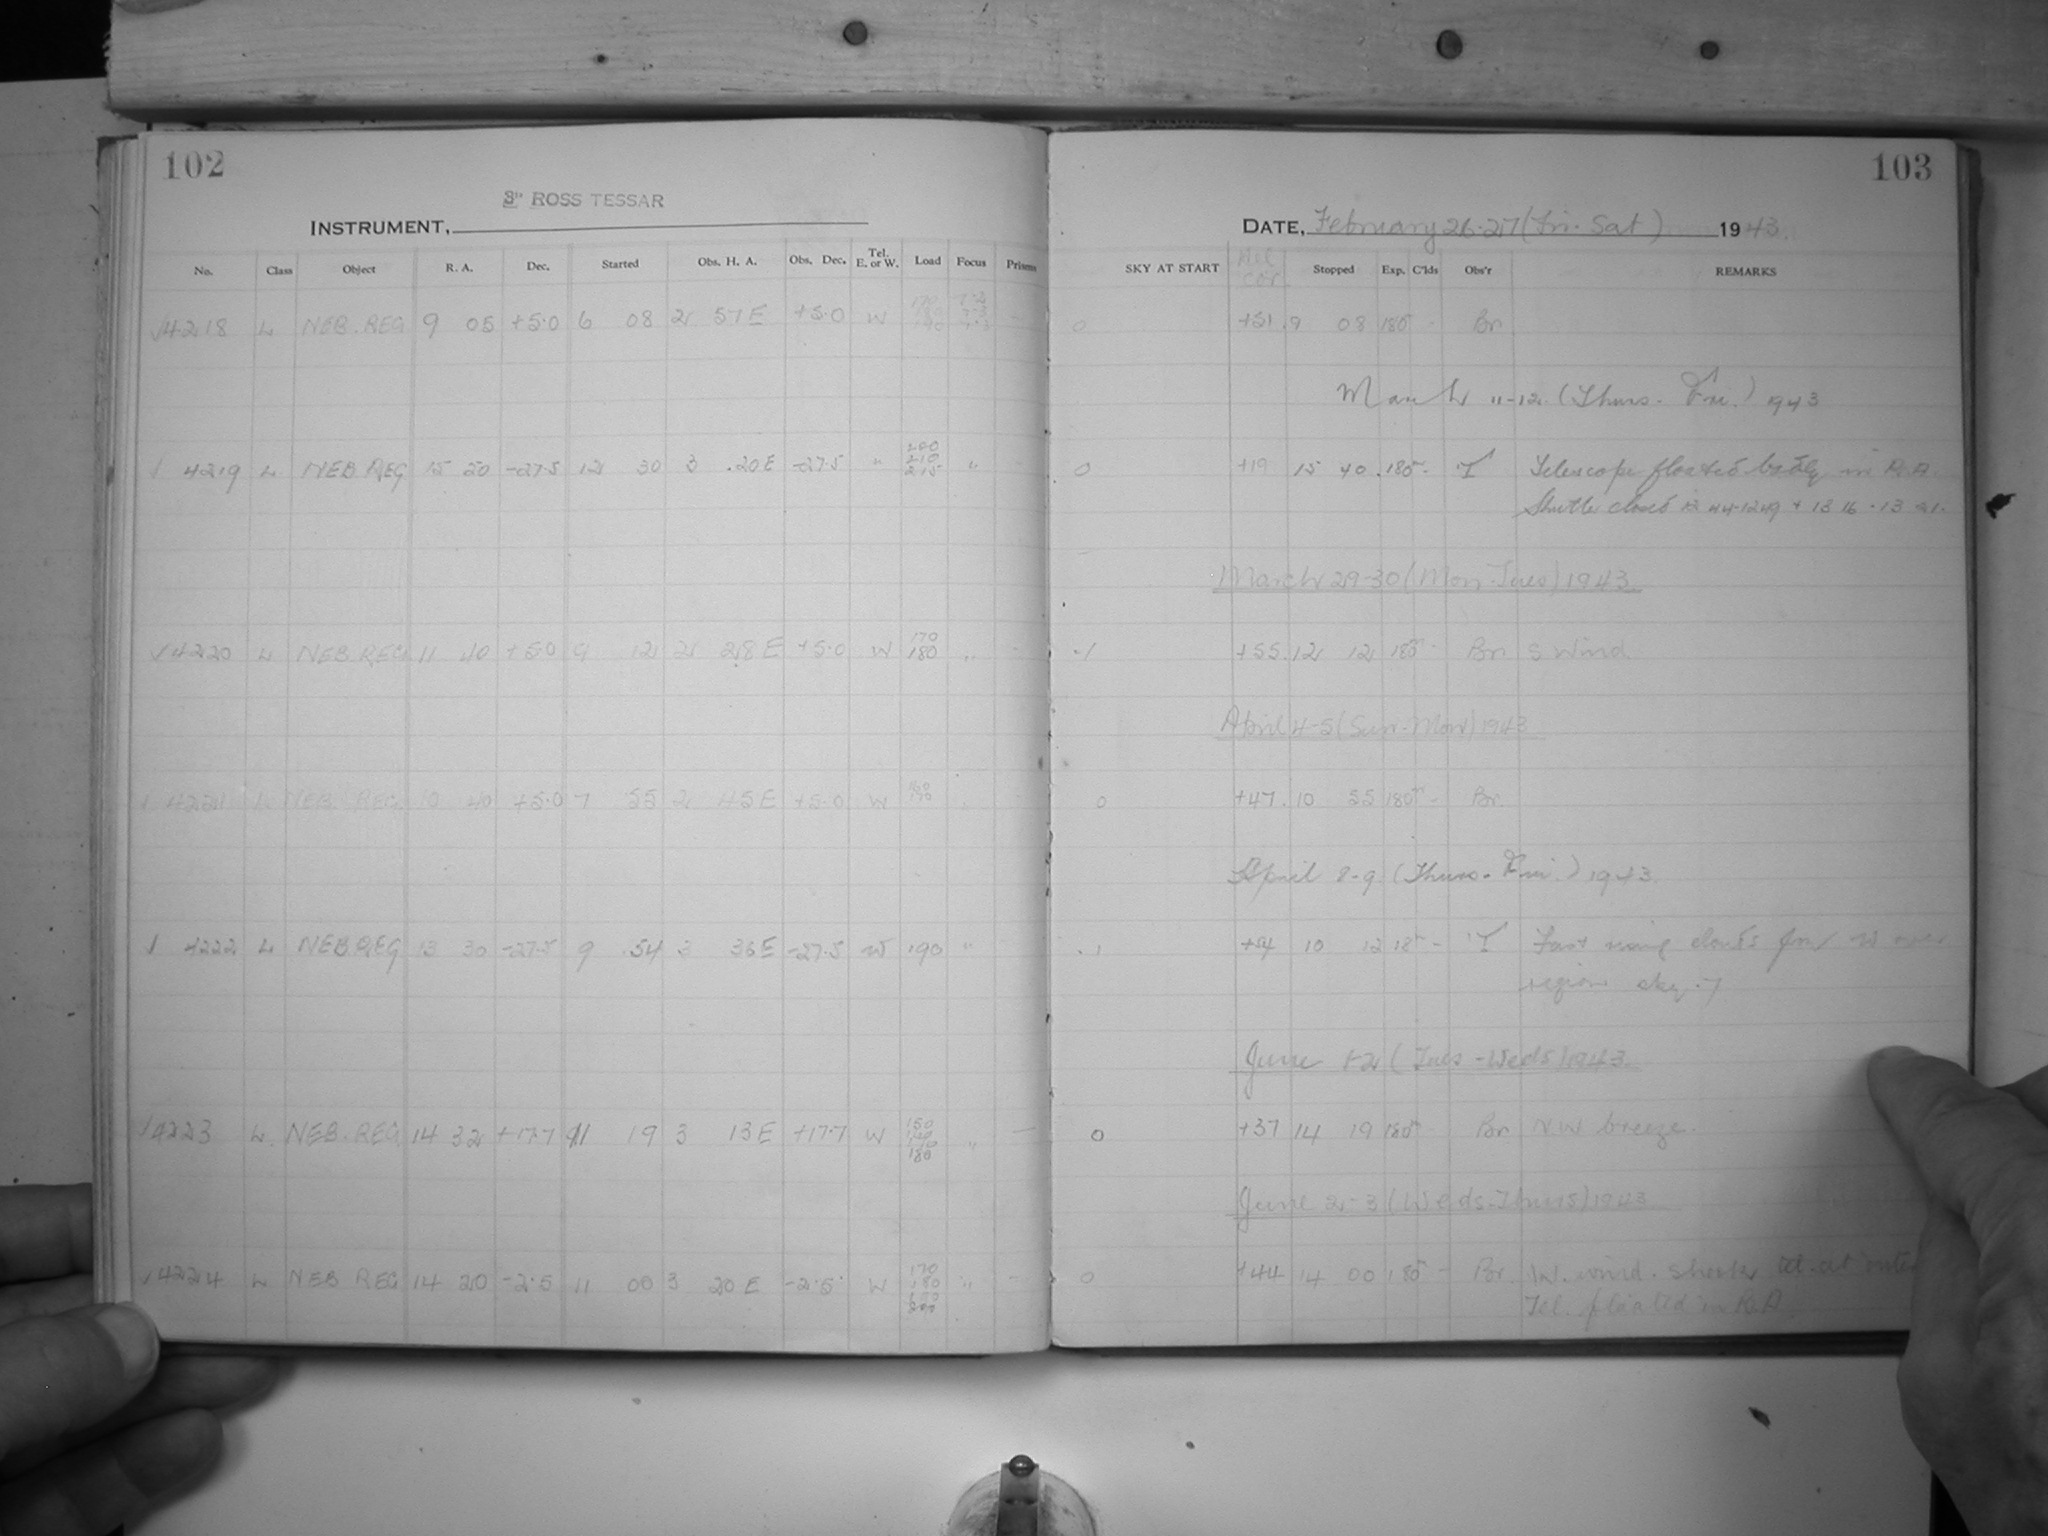 102
3" ROSS TESSAR
INSTRUMENT,
No. Class Object R. A. Dec. Started Obs. H. A. Obs. Dec. Tel. E. or W. Load Focus Prisms
√4218 L NEB. REG 9 05 +5.0 6 08 2 57 E +5.0 W 170 180 190 7.2 7.3 7.3 -
√ 4219 L NEB REG 15 20 -27.5 12 30 3 20 E -27.5 " 200 210 215 "
√4220 L NEB. REG. 11 40 +5.0 9 12 2 28 E +5.0 W 170 180 " -
√ 4221 L NEB. REG. 10 40 +5.0 7 55 2 45 E +5.0 W 160 170 "
√ 4222 L NEB REG 13 30 -27.5 9 54 3 36 E -27.5 W 190 "
√4223 L NEB. REG 14 32 +17.7 11 19 3 13 E +17.7 W 150 180 " -
√4224 L NEB REG 14 20 -2.5 11 00 3 20 E -2.5 W 170 180 200 " -
103
DATE, February 26-27 (Fri-Sat) 1943.
SKY AT START Stopped Exp. C'lds Obs'r REMARKS
0 +51 9 08 180m - Br.
March 11-12. (Thurs. - Fri.) 1943
0 +19 15 40 185m - T Telescope floated badly in R.A.
Shutter closed 12 44-12 49 + 13 16 - 13 21.
March 29-30 (Mon-Tues) 1943.
-1 +55 12 12 180m - Br. S Wind
April 4-5 (Sun-Mon) 1943
0 +47 10 55 180m - Br.
April 8-9 (Thurs. - Fri.) 1943.
-1 +54 10 12 18m - T Fast rising clouds from W over
region sky -7
June 1-2 (Tues-Weds) 1943.
0 +37 14 19 180m Br. NW breeze.
June 2-3 (Weds-Thurs) 1943
0 +44 14 00 180m - Br. W. wind. shook tel. at
Tel. floated in R.A